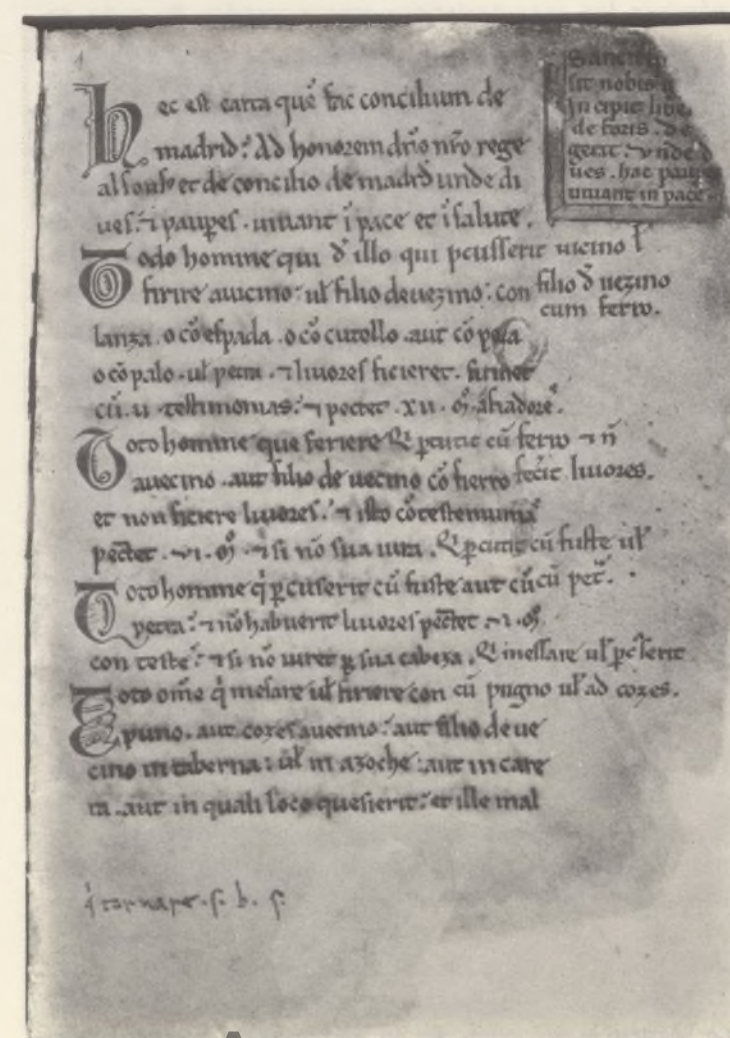 Sancti
sit nobis
Incipit libe
de foris . de
gerit : vnde d
ues . hac paup
uiuant in pace
hec est carta quē fac concilium de
madrid : Ad honorem dño nr̃o rege
alfonso et de concilio de madrid unde di
ues : ⁊ paupes . uiuant ī pace et ī salute .
Todo homine qui đ illo qui pcusserit uicino ł
firire auicino : ul filio deuezino : con filio đ uezino
cum ferro .
lanza . o cō espada . o cō cutello . aut cō pora
o cō palo . ul petra . ⁊ liuores ficieret . firmet
cū . u . testimonias : ⁊ pectet . xii . m̃ . afiadores .
Toto homine que feriere Qi pcutit cū ferro ⁊ ñ
auecino . aut filio de uecino cō fierro fecit liuores .
et non ficiere liuores . ⁊ isto cō testemunias
pectet . ui . m̃ . ⁊ si nō sua iura . Qi pcutit cū fuste ul
Toto homine q̇ pcuserit cū fuste aut cū cū pet̃ .
petra : ⁊ nō habuerit liuores pectet . ii . m̃ .
con teste : ⁊ si nō iuret p sua cabeza . Qi messare ul pcuserit
Toto om̃e q̇ mesare ul firiere con cū pugno ul ad cozes .
puno . aut cozes auecino : aut filio de ue
cino in taberna : ul in azoche : aut in care
ra . aut in quali loco quesierit : et ille mal